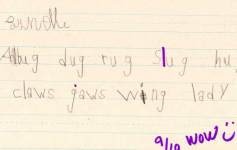 dug rug slug hu
claws jaws wing lady
9/10 wow